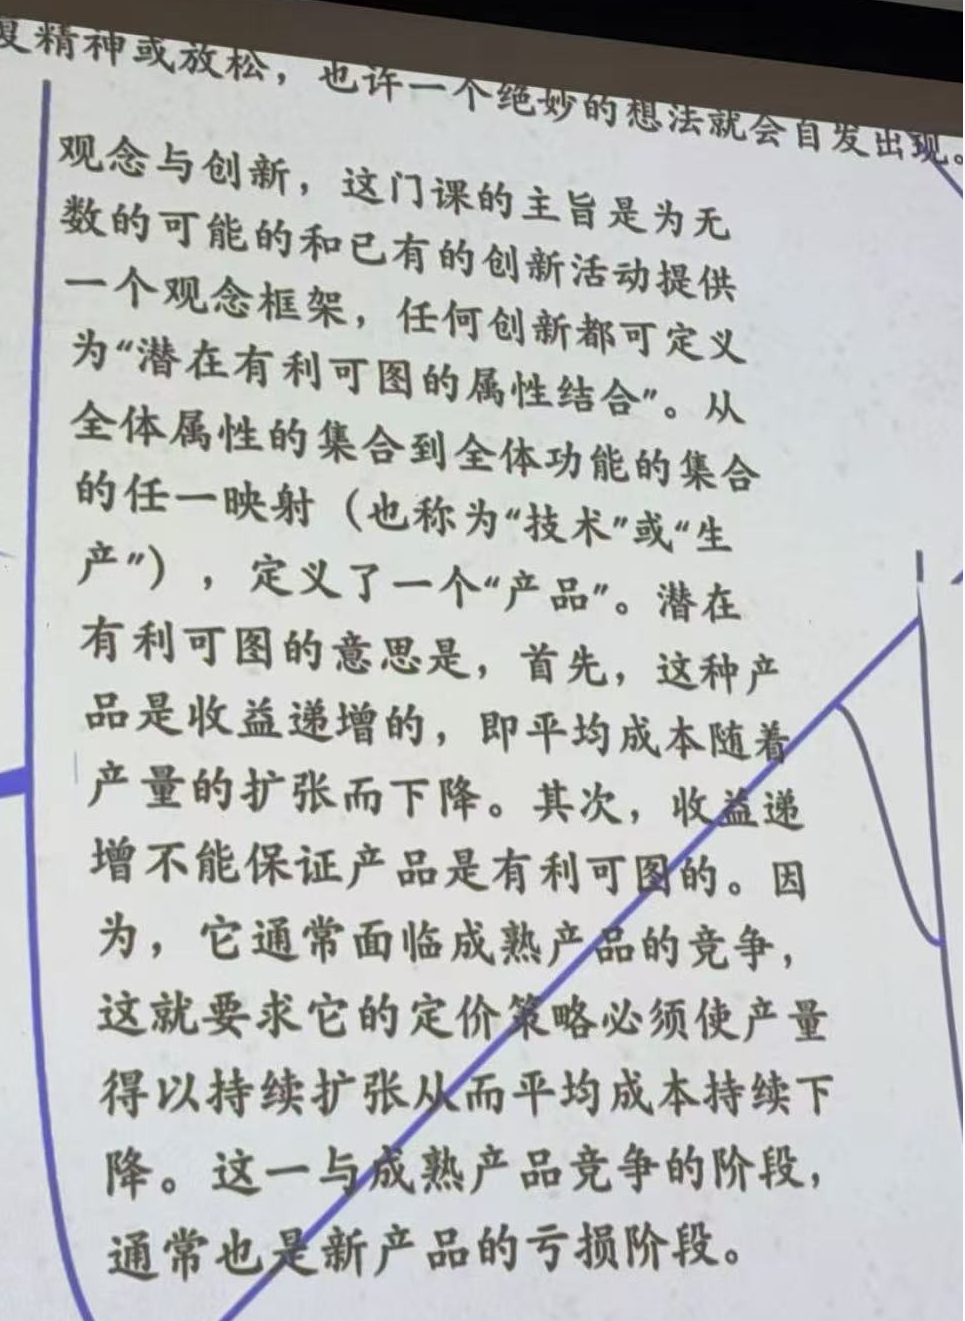 精神或放松，也许一个绝妙的想法就会自发出现。
观念与创新，这门课的主旨是为无
数的可能的和已有的创新活动提供
一个观念框架，任何创新都可定义
为“潜在有利可图的属性结合”。从
全体属性的集合到全体功能的集合
的任一映射（也称为“技术”或“生
产”），定义了一个“产品”。潜在
有利可图的意思是，首先，这种产
品是收益递增的，即平均成本随着
产量的扩张而下降。其次，收益递
增不能保证产品是有利可图的。因
为，它通常面临成熟产品的竞争，
这就要求它的定价策略必须使产量
得以持续扩张从而平均成本持续下
降。这一与成熟产品竞争的阶段，
通常也是新产品的亏损阶段。